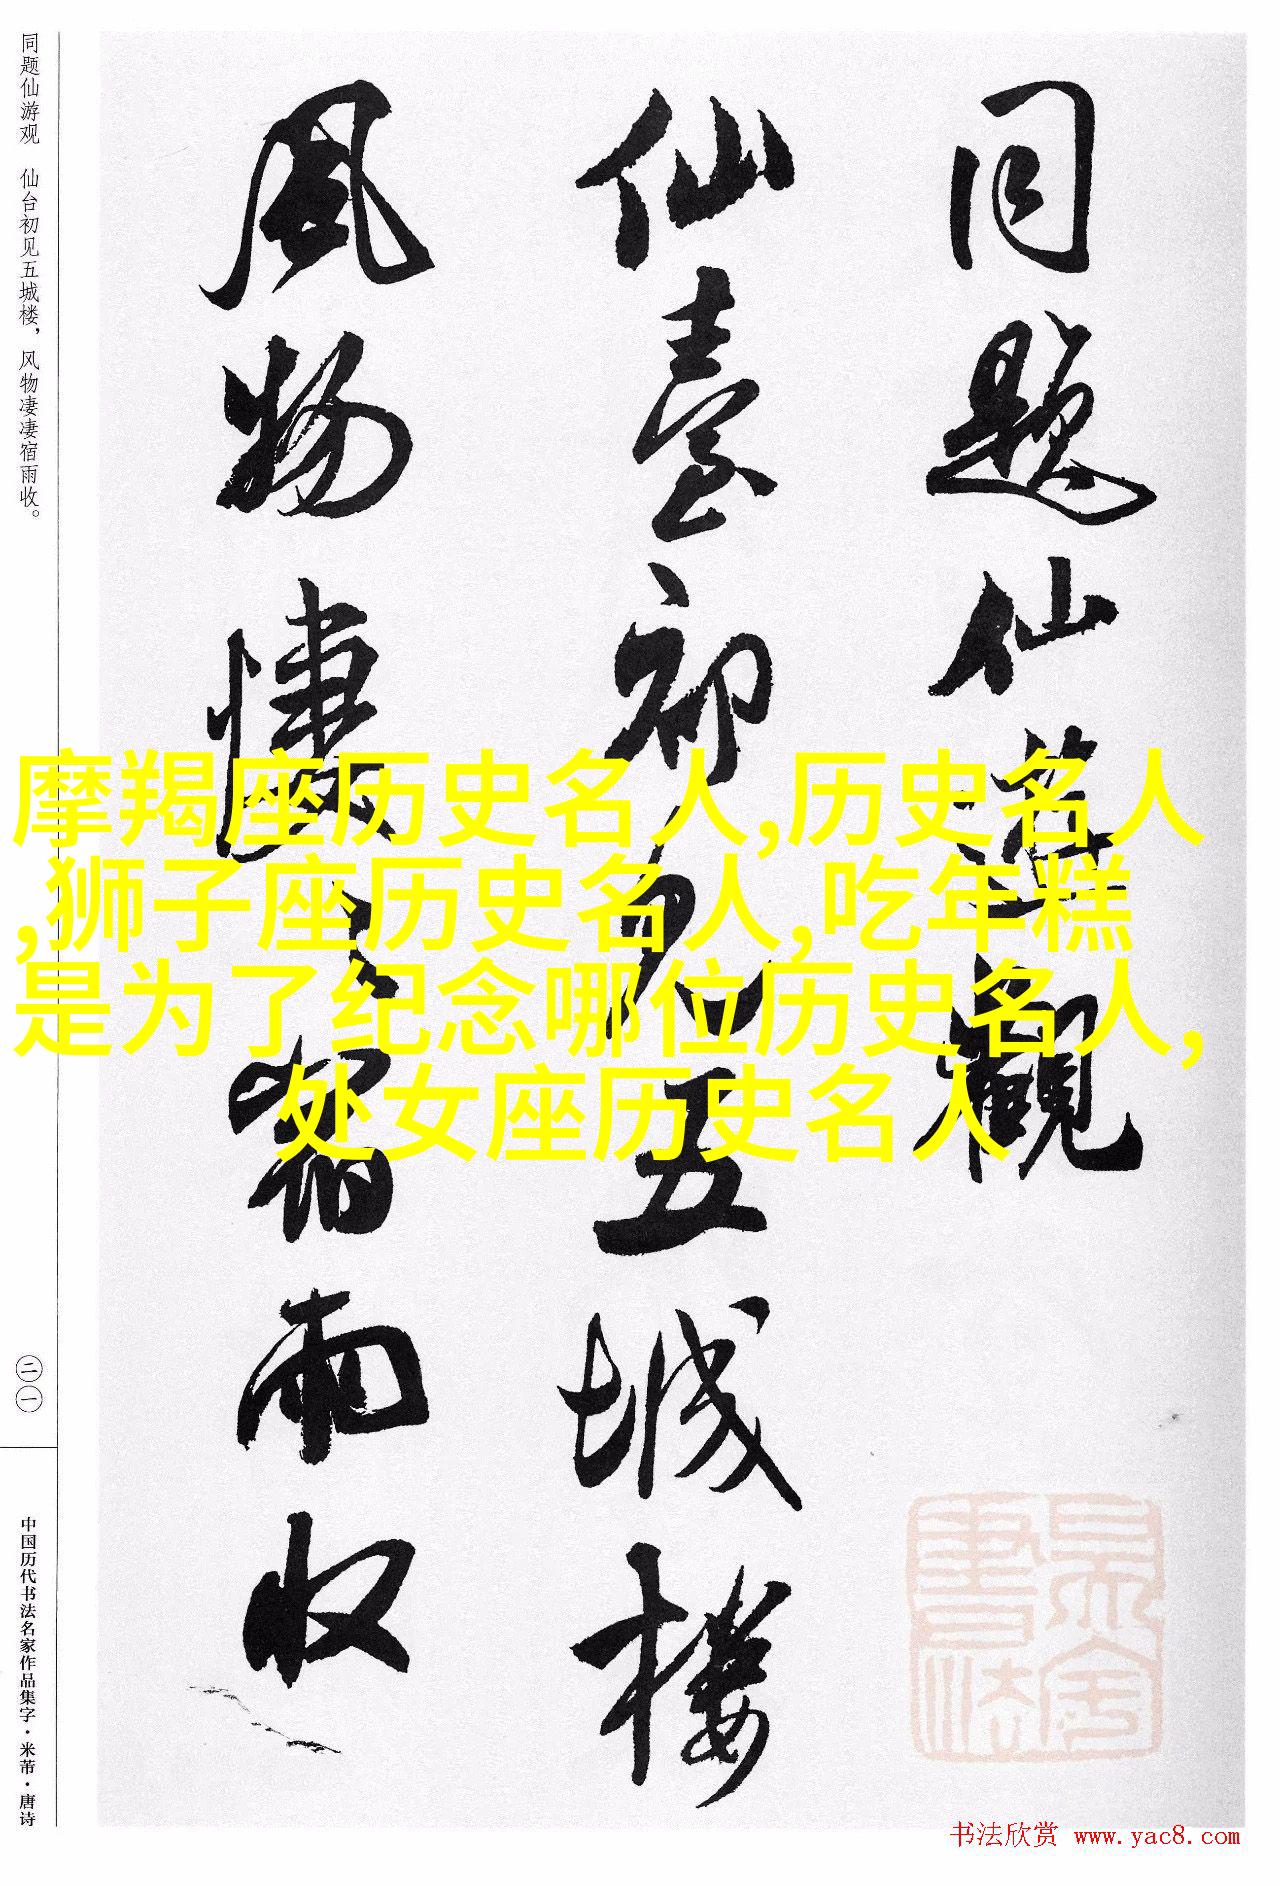 同题仙游观
仙臺初见五城楼
风物悽〻宿雨收
同题仙游观 仙台初见五城楼，风物凄凄宿雨收。
二一
中国历代书法名家作品集字·米芾·唐诗
摩羯座历史名人,历史名人
,狮子座历史名人,吃年糕
是为了纪念哪位历史名人,
处女座历史名人
书法欣赏 www.yac8.com